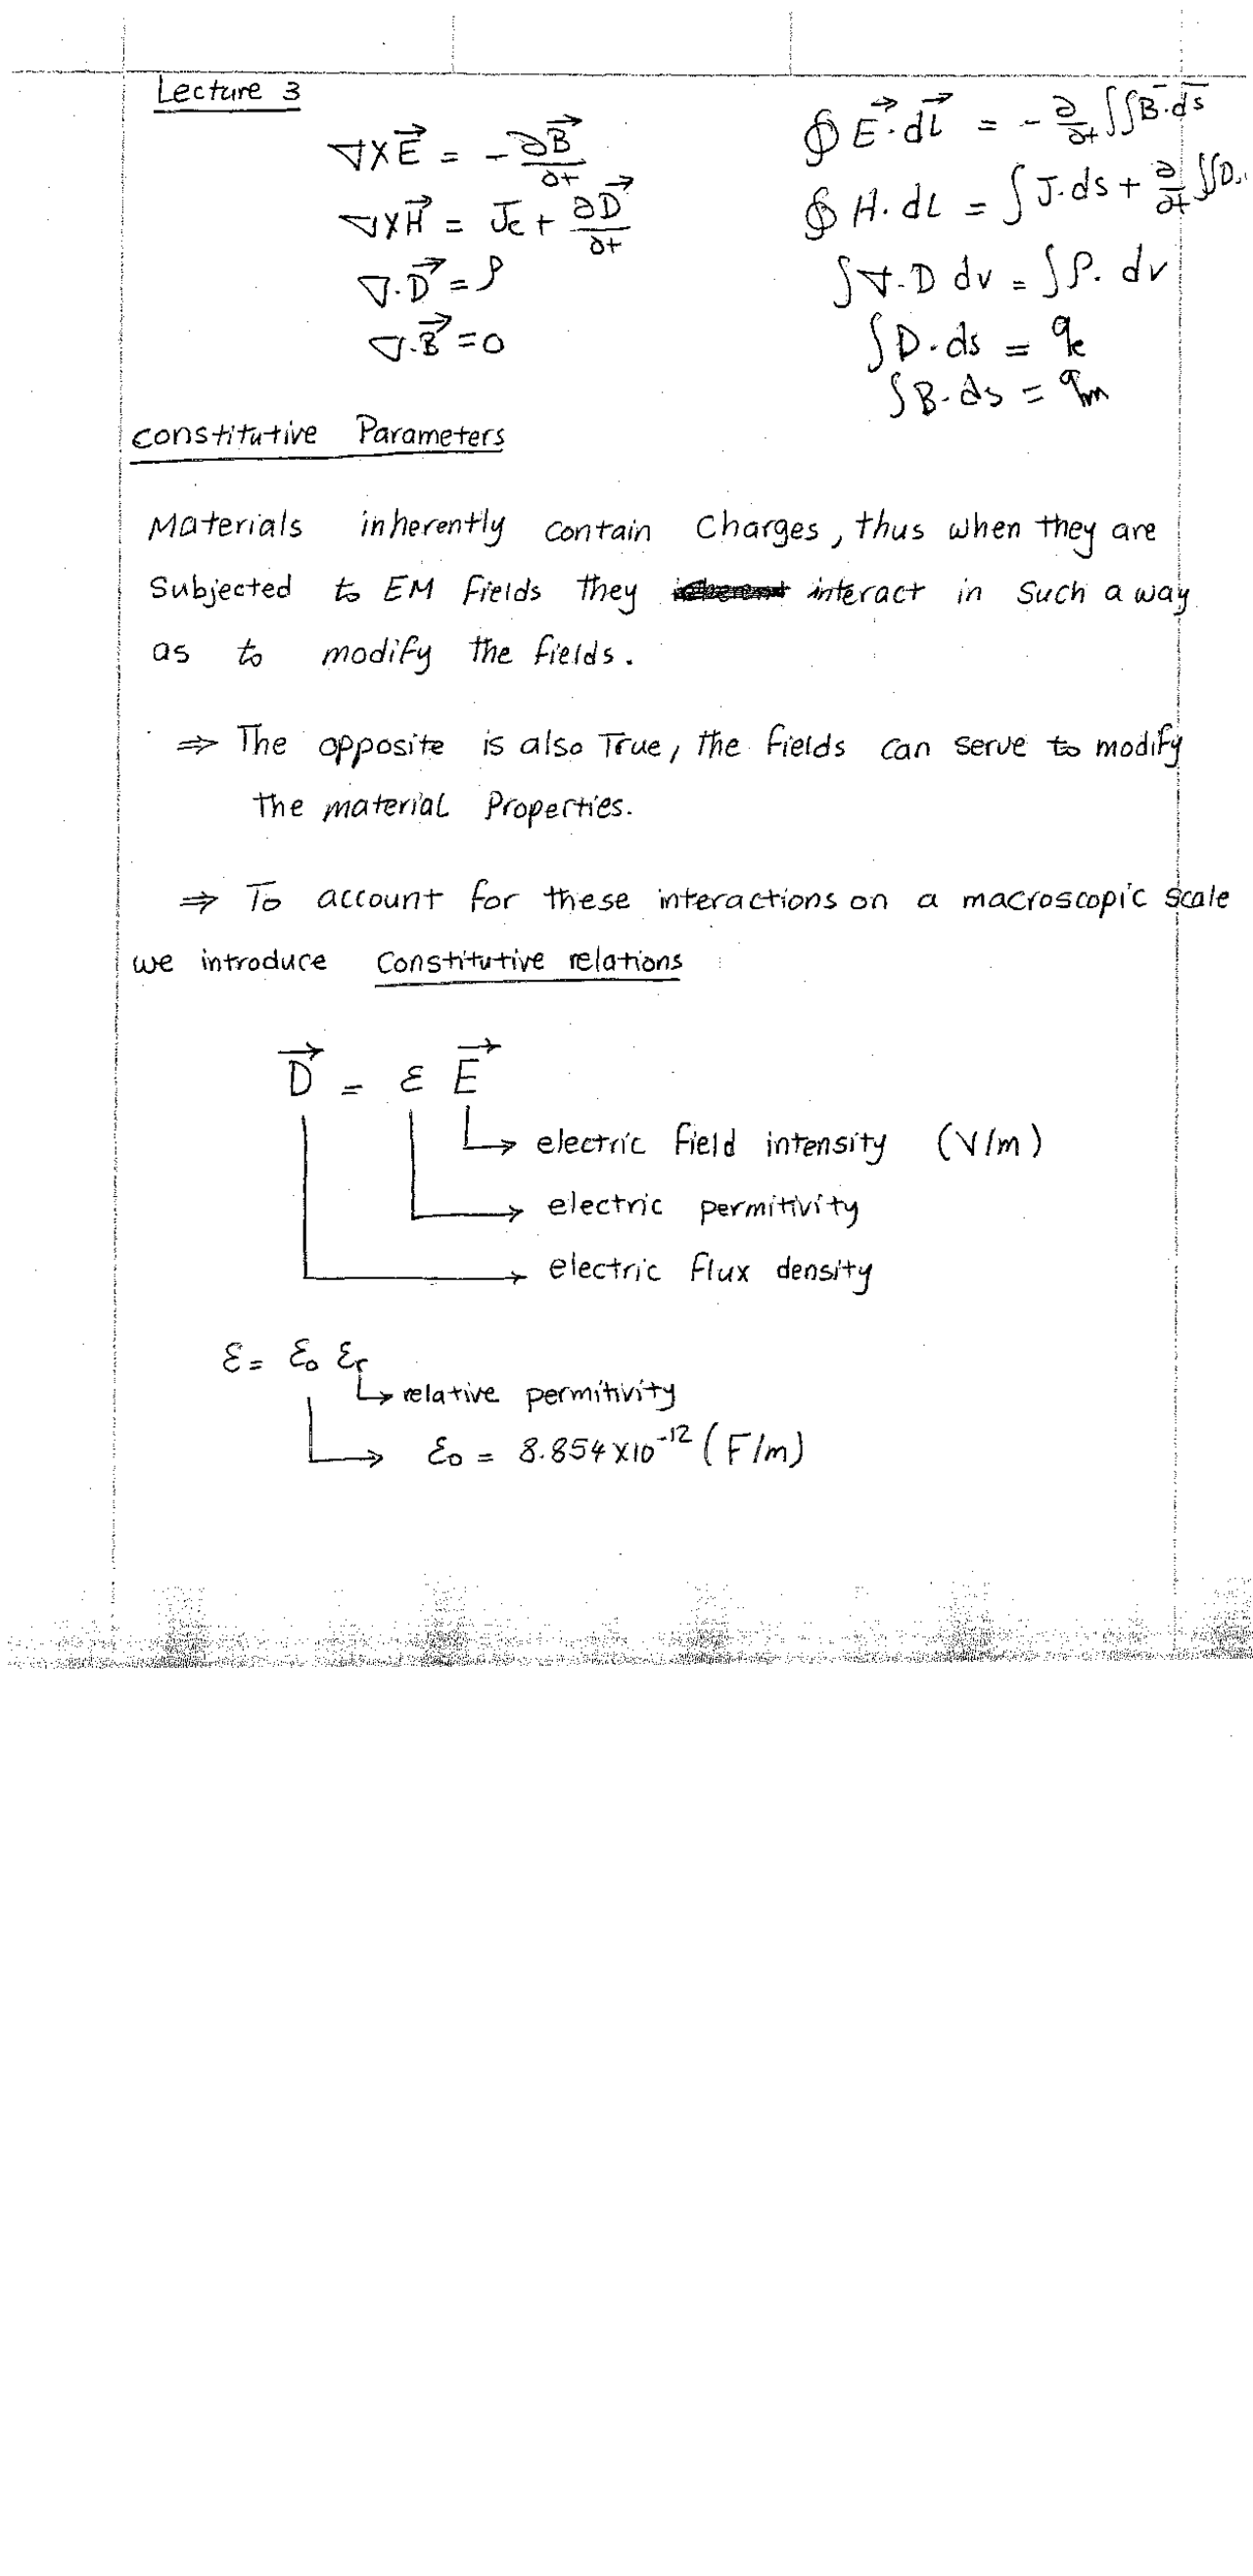 Lecture 3
∇×E⃗ = -∂B⃗/∂t
∇×H⃗ = Jc + ∂D⃗/∂t
∇·D⃗ = ρ
∇·B⃗ = 0
∮ E⃗·dl⃗ = - ∂/∂t ∫∫ B̄·ds̄
∮ H·dL = ∫ J·ds + ∂/∂t ∫∫ D.
∫ ∇·D dv = ∫ ρ. dv
∫ D·ds = qe
∫ B·ds = qm
constitutive Parameters
Materials inherently contain Charges, thus when they are
Subjected to EM fields they interact in Such a way
as to modify the fields.
⇒ The opposite is also True, the fields can serve to modify
the material Properties.
⇒ To account for these interactions on a macroscopic scale
we introduce Constitutive relations
D⃗ = ε E⃗
→ electric field intensity (V/m)
→ electric permitivity
→ electric flux density
ε = ε₀ εr
→ relative permitivity
→ ε₀ = 8.854×10⁻¹² (F/m)